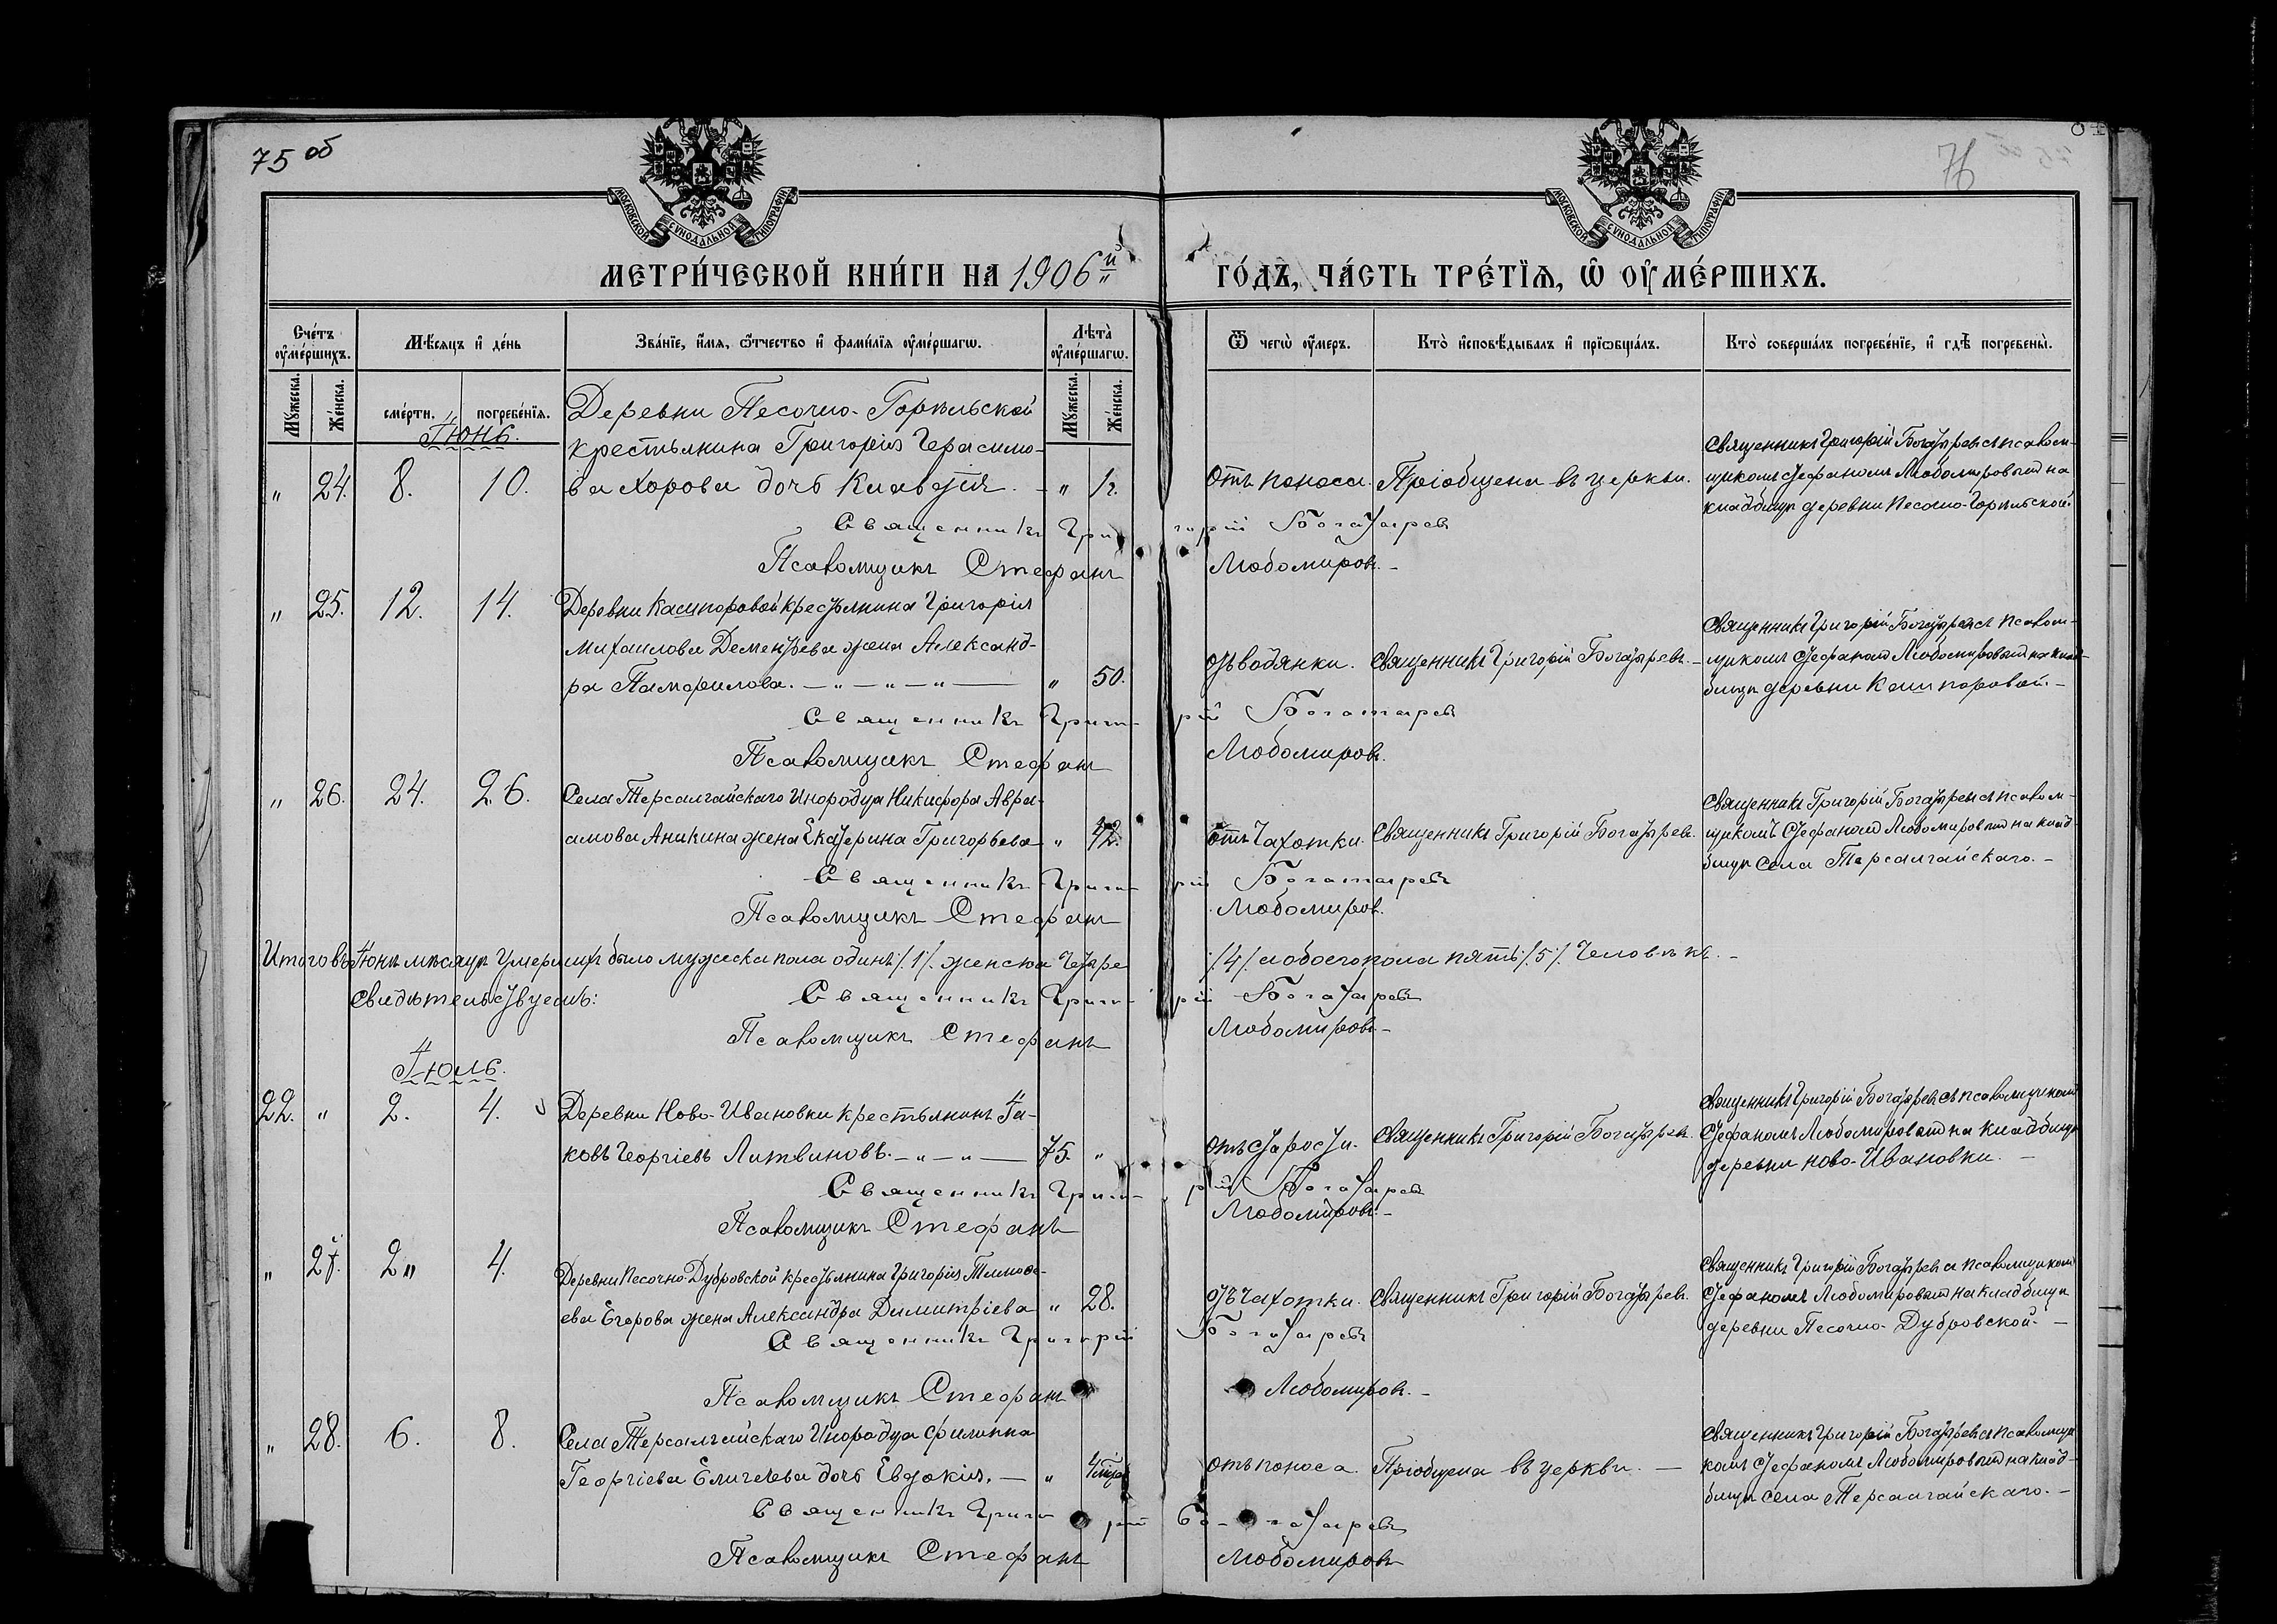 75 об
76
МОСКОВСКОЙ СѴНОДАЛЬНОЙ ТИПОГРАФІИ
МОСКОВСКОЙ СѴНОДАЛЬНОЙ ТИПОГРАФІИ
МЕТРИ́ЧЕСКОЙ КНИ́ГИ НА 1906й ГО́ДЪ, ЧА́СТЬ ТРЕ́ТЇѦ, Ѡ ОУ҆МЕ́РШИХЪ.
Сче́тъ оу҆ме́ршихъ.
Мѣ́сяцъ и҆ де́нь
Зва́нїе, и҆́мя, ѻ҆́тчество и҆ фами́лїя оу҆ме́ршагѡ.
Лѣ́та оу҆ме́ршагѡ.
Ѿ чегѡ̀ оу҆́меръ.
Кто̀ и҆сповѣ́дывалъ и҆ прїѡбща́лъ.
Кто̀ соверша́лъ погребе́нїе, и҆ гдѣ̀ погребены̀.
Мꙋ́жеска. Же́нска.
сме́рти. погребе́нїя.
Мꙋ́жеска. Же́нска.
Іюнь.
Деревни Песочно-Горѣльской
крестьянина Григорія Герасимо-
" 24. 8. 10. ва Хорова дочь Клавдія. - " 1 г. Отъ поноса. Пріобщена въ церкви.
Священникъ Григорій Богатыревъ съ псалом-
щикомъ Стефаномъ Любомировымъ на
кладбищѣ деревни Песочно-Горѣльской.
Священникъ Григорій Богатырев
Псаломщикъ Стефанъ Любомировъ. -
" 25. 12. 14. Деревни Кашпоровой крестьянина Григорія
Михаилова Дементьева жена Александ-
ра Памфилова. — " — " — " — " 50. отъ водянки. Священникъ Григорій Богатыревъ. -
Священникъ Григорій Богатыревъ съ псалом-
щикомъ Стефаномъ Любомировымъ на клад-
бищѣ деревни Кашпоровой. -
Священникъ Григорій Богатырев
Псаломщикъ Стефанъ Любомировъ.
" 26. 24. 26. Села Терсалгайскаго Инородца Никифора Авра-
амова Аникина жена Екатерина Григорьева " 42. отъ Чахотки. Священникъ Григорій Богатырев.
Священникъ Григорій Богатыревъ съ псалом-
щикомъ Стефаномъ Любомировымъ на клад-
бищѣ села Терсалгайскаго. -
Священникъ Григорій Богатыревъ
Псаломщикъ Стефанъ Любомиров.
Итого въ Іюнѣ мѣсяцѣ умершихъ было мужеска пола одинъ /.1/. женска Четыре /.4/. и обоего пола пять /.5/. Человѣкъ. -
Свидѣтельствуемъ: Священникъ Григорій Богатыревъ
Псаломщикъ Стефанъ Любомировъ. -
Іюль.
22. " 2. 4. Деревни Ново-Ивановки крестьянинъ Іа-
ковъ Георгіевъ Литвиновъ. — " — " — 75. " отъ старости. Священникъ Григорій Богатырев.
Священникъ Григорій Богатыревъ съ псаломщикомъ
Стефаномъ Любомировымъ на кладбищѣ
деревни Ново-Ивановки. -
Священникъ Григорій Богатырев
Псаломщикъ Стефанъ Любомировъ. -
" 27. 2 " 4. Деревни Песочно-Дубровской крестьянина Григорія Тимофе-
ева Егорова жена Александра Димитріева " 28. отъ Чахотки. Священникъ Григорій Богатырев.
Священникъ Григорій Богатыревъ съ псаломщикомъ
Стефаномъ Любомировымъ на кладбищѣ
деревни Песочно-Дубровской. -
Священникъ Григорій Богатыревъ
Псаломщикъ Стефанъ Любомировъ. -
" 28. 6. 8. Села Терсалгайскаго Инородца Филиппа
Георгіева дочь Евдокія. — " 4 отъ поноса. Пріобщена въ церкви. —
Священникъ Григорій Богатыревъ съ псаломщи-
комъ Стефаномъ Любомировымъ на клад-
бищѣ села Терсалгайскаго. -
Священникъ Григорій Богатыревъ
Псаломщикъ Стефанъ Любомировъ